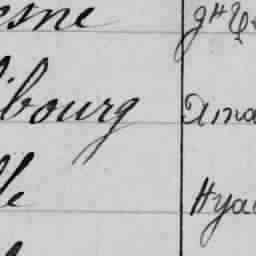 esne
ibourg Ama
lle Hya